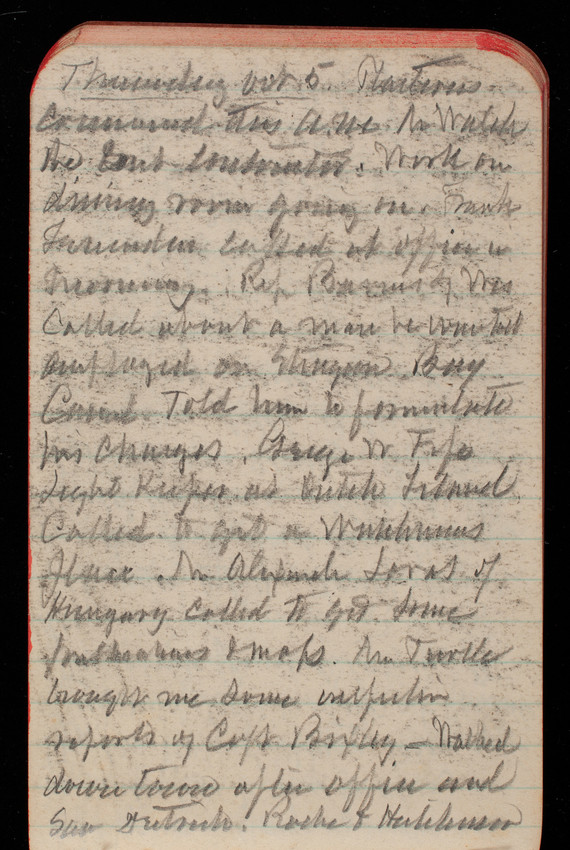 Thursday Oct 5. Plasterers
commenced this A.M. Mr Walsh
the Contractor. Work on
dining room going on. Frank
called at office in
morning. Rep Barnes of Wis
Called about a man he wanted
employed on Sturgeon Bay
Canal. Told him to formulate
his charges. George W. Fife
Light Keeper at Dutch Island
Called to get a Watchmans
place. Mr Alexander of
Hungary called to get some
publications & maps. Mr Turtle
brought me some inspection
reports of Capt Bixby - Walked
down town after office and
saw Dietrich. Roche & Hutchinson